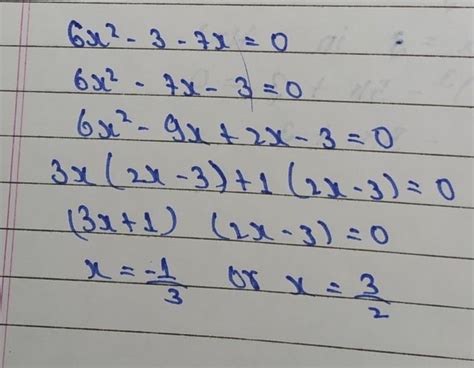 6x² - 3 - 7x = 0
6x² - 7x - 3 = 0
6x² - 9x + 2x - 3 = 0
3x (2x - 3) + 1 (2x - 3) = 0
(3x + 1) (2x - 3) = 0
x = -1/3 or x = 3/2